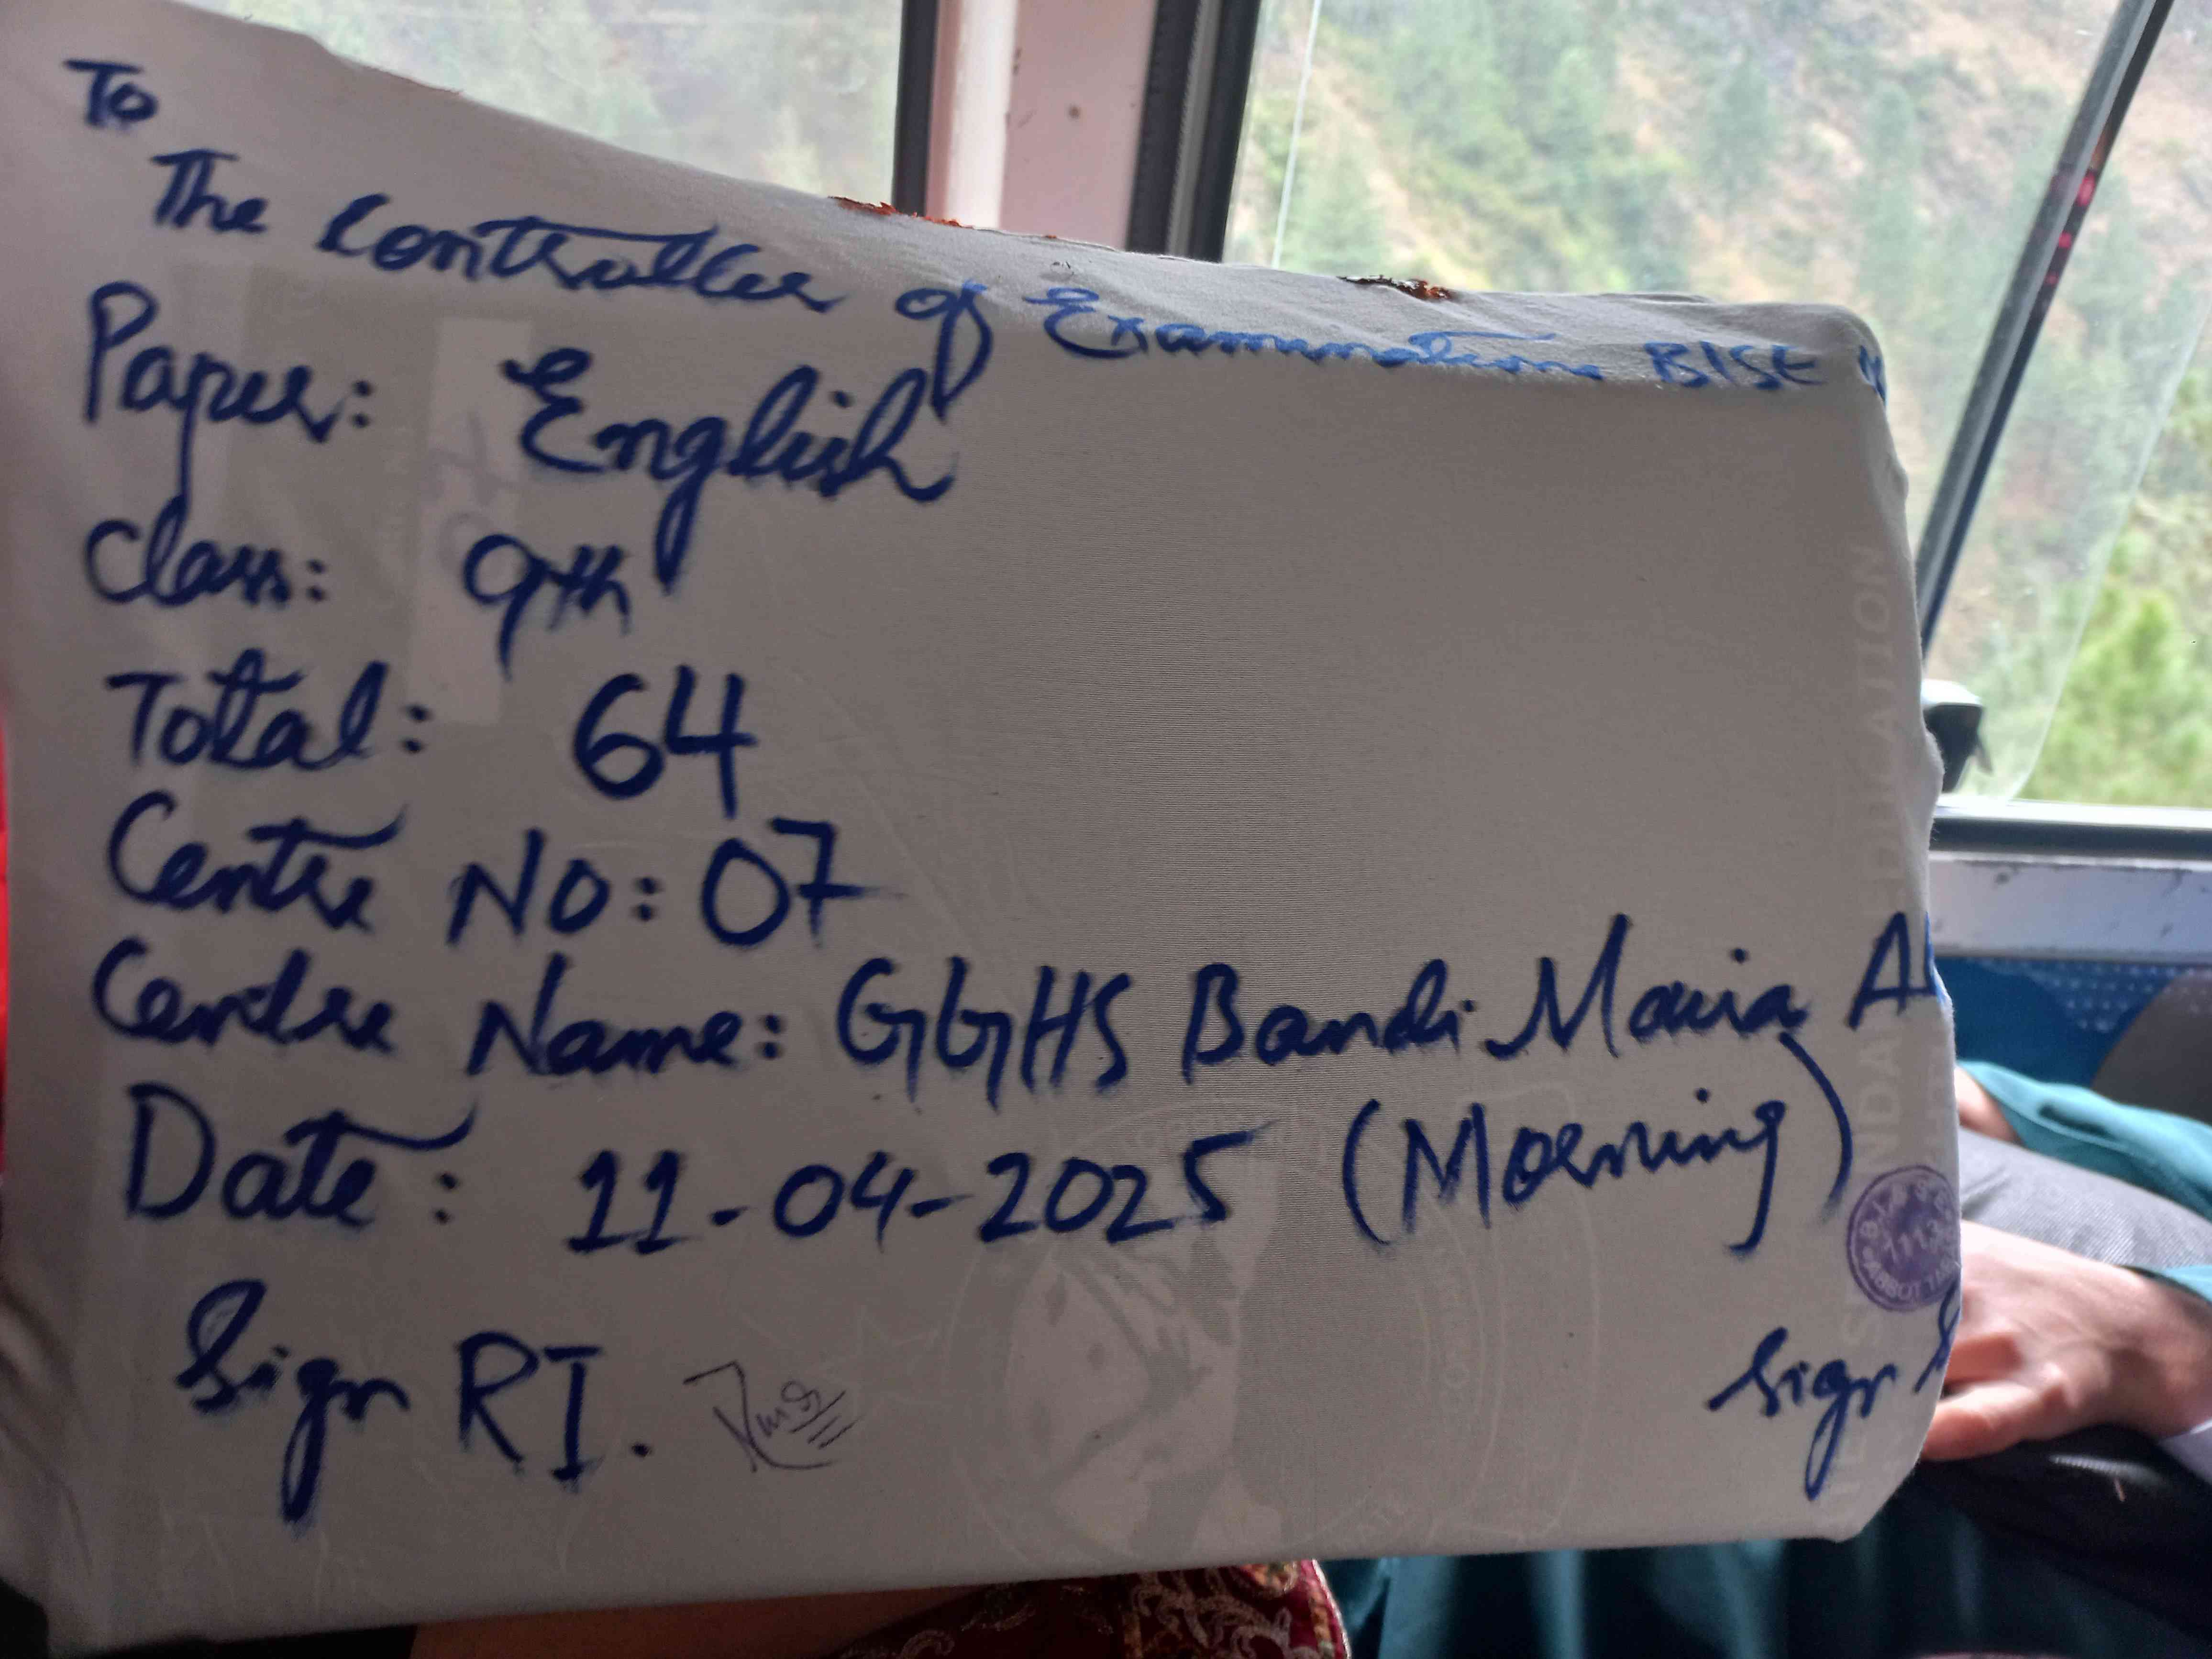 To
The Controller of Examination BISE
Paper: English
Class: 9th
Total: 64
Centre No: 07
Centre Name: GGHS Bandi Maira A
Date: 11-04-2025 (Morning)
Sign RI.
Sign